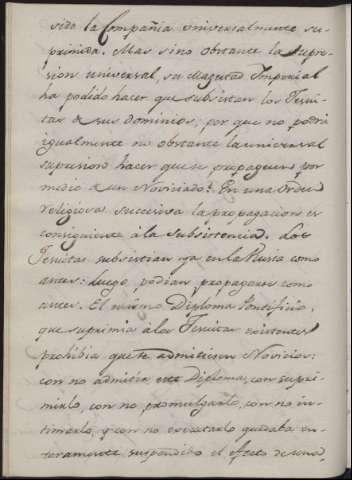 sido la Compañia universalmente su-
primida. Mas si no obstante la supre-
sion universal, su Magestad Imperial
ha podido hacer que subsistan los Jesui-
tas de sus dominios; por que no podrá
igualmente no obstante la universal
supresion hacer que se propaguen por
medio de un Noviciado? En una Orden
religiosa succesiva la propagacion es
consiguiente á la subsistencia. Los
Jesuitas subsistian ya en la Rusia como
antes: luego podian propagarse como
antes. El mismo Diploma Pontificio,
que suprimia á los Jesuitas existentes
prohibia que se admitiesen Novicios:
con no admitir este Diploma, con supri-
mirlo, con no promulgarlo, con no in-
timarlo, y con no executarlo quedaba en-
teramente suspendido el efecto de una,